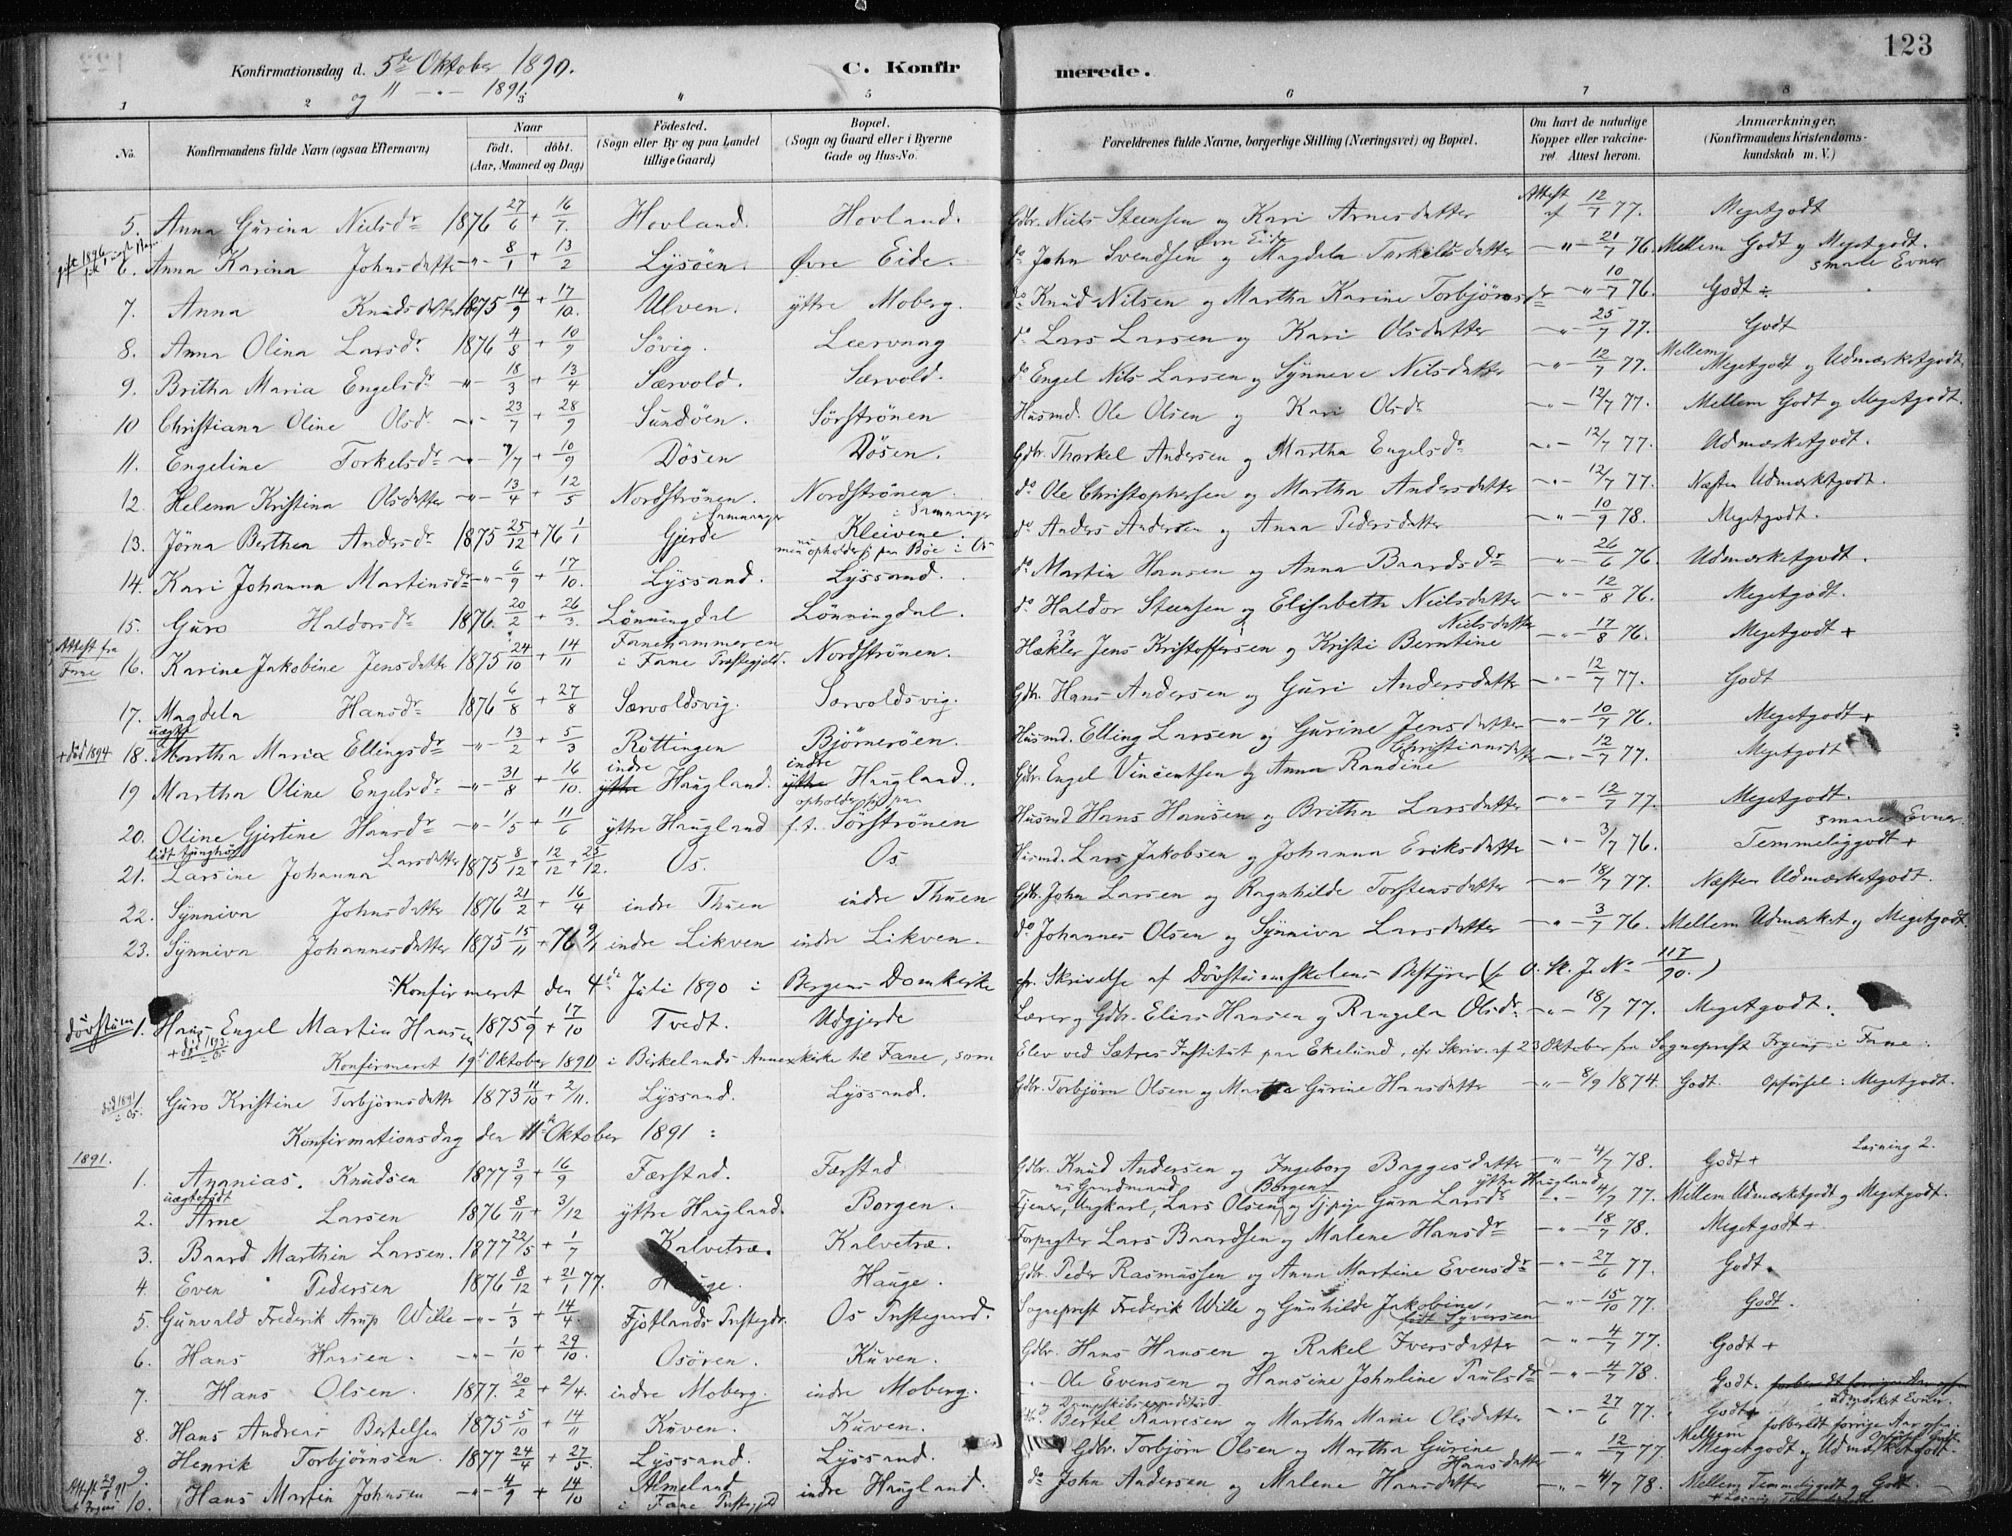 123
Konfirmationsdag d. 5te Oktober 1890.
og 11 -"- 1891.
C. Konfirmerede.
1 2 3 4 5 6 7 8
No.
Konfirmandens fulde Navn (ogsaa Efternavn)
Naar
födt. döbt.
(Aar, Maaned og Dag)
Födested.
(Sogn eller By og paa Landet tillige Gaard)
Bopæl.
(Sogn og Gaard eller i Byerne Gade og Hus-No.
Forældrenes fulde Navne, borgerlige Stilling (Næringsvei) og Bopæl.
Om havt de naturlige Kopper eller vakcineret Attest herom.
Anmærkninger.
(Konfirmandens Kristendomskundskab m. V.)
5. Anna Gurina Nielsdr 1876 27/6 + 16/7. Hovland. Hovland. Gdbr. Niels Steensen og Kari Arnesdatter Attest af 12/7 77. Megetgodt
6. Anna Karina Johnsdatter -"- 8/1 + 13/2 Lysöen. Øvre Eide. do John Svendsen og Magdela Torkilsdatter -"- 21/7 76. Mellem Godt og Megetgodt. smaae Evner
7. Anna Knudsdatter 1875 14/9 + 17/10. Ulven. yttre Moberg. do Knud Nilsen og Martha Karine Torbjörnsdr -"- 10/7 76. Godt
8. Anna Olina Larsdr 1876 4/8 + 10/9 Sövig. Leervaag do Lars Larsen og Kari Olsdatter -"- 25/7 77. Godt
9. Britha Maria Engelsdr -"- 18/3 + 13/4 Særvold. Særvold. do Engel Nils Larsen og Synneve Nilsdatter -"- 12/7 77. Mellem Megetgodt og Udmærketgodt
10 Christiana Oline Olsdr -"- 23/7 + 28/9 Sundöen. Sörströnen Husmd. Ole Olsen og Kari Olsdr -"- 12/7 77. Mellem Godt og Megetgodt.
11. Engeline Torkelsdr -"- 9/7 + 10/9 Dösen Dösen. Gdbr. Thorkel Andersen og Martha Engelsdr -"- 12/7 77. Udmærketgodt.
12. Helena Kristina Olsdatter -"- 13/4 + 12/5 Nordströnen. Nordströnen. do Ole Christophersen og Martha Andersdatter -"- 12/7 77. Næsten Udmærketgodt.
13. Jörna Berthea Andersdr 1875 25/12 + 76 1/1 Gjerde i Samnanger Kleivene. i Samnanger men opholder sig paa Böe i Os do Anders Andersen og Anna Pedersdatter -"- 10/9 78. Megetgodt.
14. Kari Johanna Martinsdr -"- 6/9 + 17/10. Lyssand. Lyssand. do Martin Hansen og Anna Baardsdr -"- 26/6 76. Udmærketgodt.
15. Guro Haldorsdr 1876. 20/2 + 26/3. Lönningdal Lönningdal. do Haldor Steensen og Elisabeth Nielsdatter -"- 12/8 76. Megetgodt.
Attest fra Fane 16. Karine Jakobine Jensdatter 1875 24/10 + 14/11 Fanehammeren i Fane Præstegjeld. Nordströnen. Hækler Jens Kristoffersen og Kristi Berntine Nielsdatter -"- 17/8 76. Megetgodt +
17. Magdela Hansdr 1876 6/8 + 27/8 Særvoldsvig. Særvoldsvig. Gdbr. Hans Andersen og Guri Andersdatter -"- 12/7 77. Godt
+ död 1894 18. uægte Martha Maria Ellingsdr -"- 13/2 + 5/3 Röttingen Björneröen. Husmd. Elling Larsen og Gurine Jensdatter -"- 10/7 76. Megetgodt +
19 Martha Oline Engelsdr -"- 31/8 + 16/10. indre yttre Haugland. indre yttre Haugland. Gdbr. Engel Vincentsen og Anna Randine Christiansdatter -"- 12/7 77. Megetgodt
20. Oline Gjertine Hansdr -"- 1/5 + 11/6 yttre Haugland opholder sig paa f.t. Sörströnen Husmd Hans Hansen og Britha Larsdatter -"- 12/7 77. Megetgodt.
21. lidt tunghör Larsine Johanna Larsdatter 1875 8/12 + 12/12 + 25/12. Os. Os Husmd. Lars Jakobsen og Johanna Eriksdatter -"- 3/7 76. smaae Evner Temmeliggodt +
22. Synniva Johnsdatter 1876 21/2 + 16/4 indre Thuen indre Thuen Gdbr. John Larsen og Ragnhilde Torstensdatter -"- 18/7 77. Næsten Udmærketgodt.
23. Synniva Johannesdatter 1875 15/11 + 76 9/1 indre Likven indre Likven. do Johannes Olsen og Synniva Larsdatter -"- 3/7 76. Mellem Udmærket og Megetgodt
Konfirmeret den 4de Juli 1890 i Bergens Domkirke cfr. Skrivelse af Dövstumskolens Bestyrer (O. Sk. J. No 117/90.)
dövstum 1. Hans Engel Martin Hansen 1875 1/9 + 17/10 Tvedt. Udgjerde Lærer og Gdbr. Elias Hansen og Rangela Olsdr -"- 18/7 77. Megetgodt.
Konfirmeret 19de Oktober 1890 i Birkelands Annexkirke til Fane, som Elev ved Sætres Institut paa Ekelund, cfr Skriv. af 23 Oktober fra Sognepræst Irgens i Fane.
1. Guro Kristine Torbjörnsdatter 1873 11/10 + 2/11. Lyssand. Lyssand. Gdbr. Torbjörn Olsen og Martha Gurine Hansdatter -"- 8/9 1874. Godt. Opførsel: Megetgodt.
Konfirmationsdag den 11te Oktober 1891:
1891.
1. Ananias. Knudsen 1877 3/9 + 16/9 Færstad. Færstad Gdbr. Knud Andersen og Ingeborg Baggesdatter -"- 4/7 78. Godt + Læsning 2.
2. uægtefödt Arne Larsen 1876 8/11 + 3/12 yttre Haugland. Borgen. Tjener, Ungkarl, Lars Olsen og Tj.pige Gura Larsdr yttre Haugland -"- 4/7 77. Mellem Udmærketgodt og Megetgodt.
3. Baard Marthin Larsen. 1877 22/5 + 1/7 Kalvetræ. Kalvetræ. Forpagter Lars Baardsen og Malene Hansdr -"- 18/7 78. Megetgodt +
4. Even Pedersen 1876 8/12 + 21/1 77. Hauge. Hauge. Gdbr. Peder Rasmussen og Anna Martine Evensdr -"- 27/6 77. Godt.
5. Gunvald Frederik Arup Wille -"- 1/3 + 14/4. Fjotlands Præstegd. Os Præstegaard. Sognepræst Frederik Wille og Gunhilde Jakobine, född Syversen -"- 15/10 77. Godt.
6. Hans Hansen. -"- 1/10 + 29/10. Osören. Kuven. Gdbr. Hans Hansen og Rakel Iversdatter -"- 4/7 77. Godt +
7. Hans Olsen. 1877. 20/2 + 2/4. indre Moberg. indre Moberg. -"- Ole Evensen og Hansine Johnline Paulsdr -"- 4/7 78. Godt.
8. Hans Andreas Bertelsen 1875 5/10 + 14/11 Kuven. Kuven. og Dampskibsexpeditör Bertel Knarresen og Martha Marie Olsdatter -"- 27/6 77. Godt udmærket Evner. forberedt forrige Aar
9 Henrik Torbjörnsen. 1877 24/4 + 27/5. Lyssand. Lyssand. Gdbr. Torbjörn Olsen og Martha Gurine Hansdatter -"- 12/7 77. Mellem Megetgodt og Udmærketgodt.
10. Hans Martin Johnsen -"- 4/9 + 14/10 Almeland i Fane Præstegjeld indre Haugland. do John Andersen og Malene Hansdatter -"- 4/7 78. Mellem Temmeliggodt og Godt.